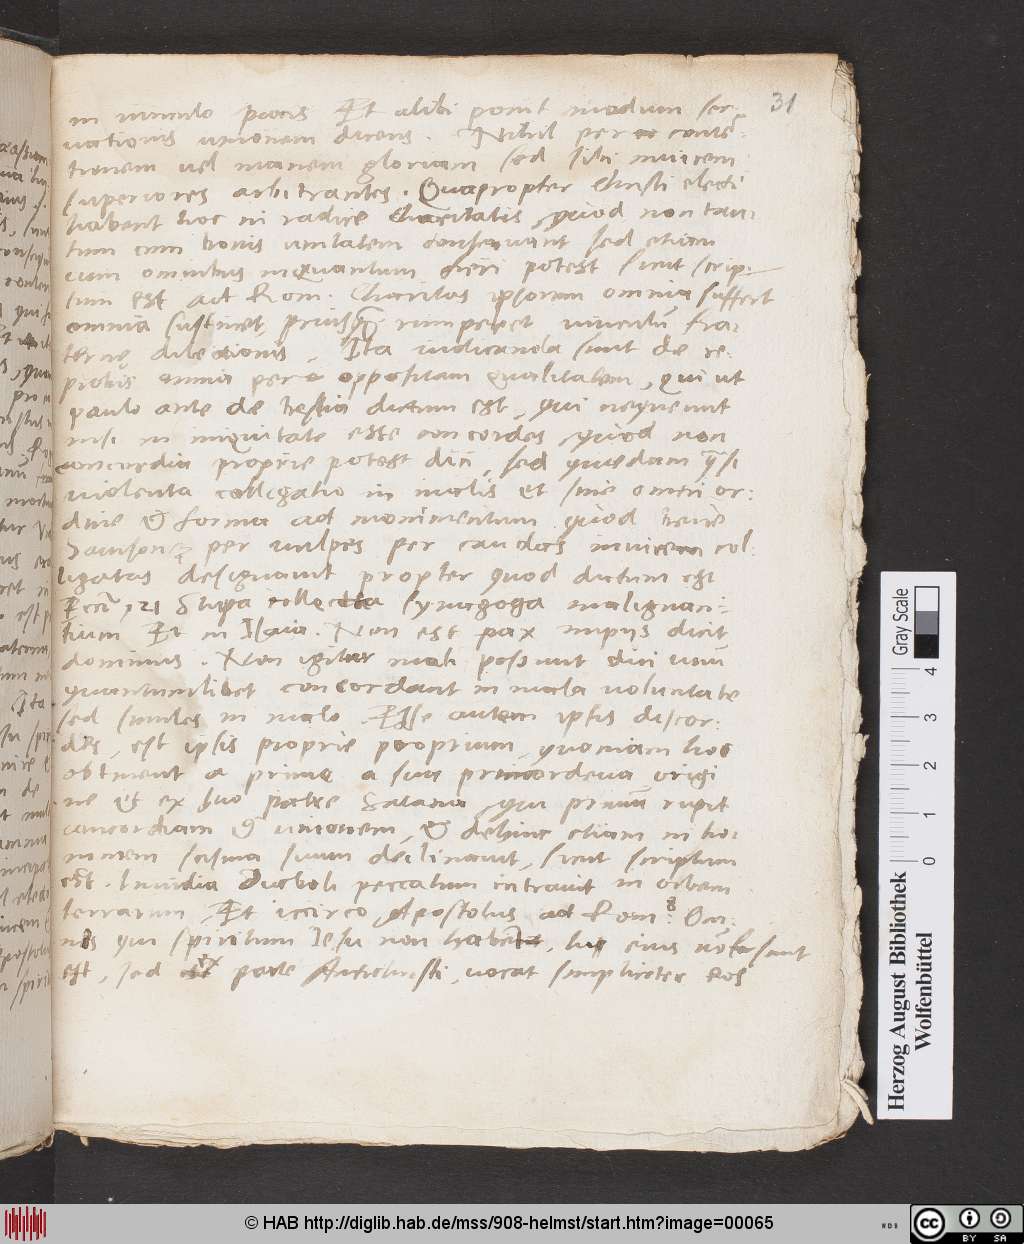 31
in vinculo pacis Et alibi ponit modum ser-
vationis unionem dicens. Nihil per conte-
tionem vel inanem gloriam sed sibi invicem
superiores arbitrantes. Quapropter Christi electi
habent hoc in radice Charitatis, quod non tan-
tum cum bonis unitatem conservant sed etiam
cum omnibus inquantum fieri potest sicut scrip-
tum est ad Rom. Charitas ipsorum omnia suffert
omnia sustinet, priusq rumperet vinculū fra-
terne dilectionis. Ita iudicanda sunt de re-
probis omnia per oppositam qualitatem, qui ut
paulo ante de bestia dictum est, qui nequeunt
nisi in iniquitate esse concordes, quod non
concordia proprie potest dici, sed quedam q̄si
violenta colligatio in malis et sine omni or-
dine & forma ad monimentum quod bene
Samson per vulpes per caudas invicem col-
ligatas designavit propter quod dictum est
Eccī 21 Stupa collectia synagoga malignan-
tium Et in Isaia. Non est pax impijs dicit
dominus. Non igitur mali possunt dici unū
quantumlibet concordant in mala voluntate
sed similes in malo. Esse autem ipsis discor-
des, est ipsis proprie proprium, quoniam hoc
obtinent a primo a sua primordeva origi
ne & ex suo patre Satana, qui primū rupit
concordiam & unionem, & dehinc etiam in ho-
minem scisma suum declinavit, sicut scriptum
est. Invidia Diaboli peccatum intravit in orbem
terrarum. Et iccirco Apostolus ad Rom. 8. Om-
nes qui spiritum Iesu non habent, hi eius nō sunt
est, sed ex parte Antichristi, vocat simpliciter eos
Gray Scale
0 1 2 3 4
Herzog August Bibliothek
Wolfenbüttel
© HAB http://diglib.hab.de/mss/908-helmst/start.htm?image=00065
WDB
cc BY SA